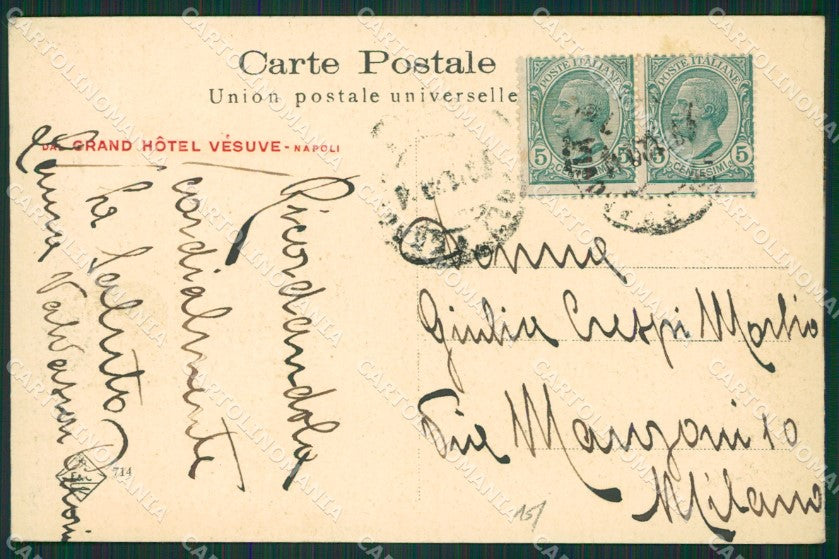 Carte Postale
Union postale universelle
DAL GRAND HÔTEL VÉSUVE - NAPOLI
POSTE ITALIANE
5 CENTESIMI 5
POSTE ITALIANE
5 CENTESIMI 5
Ricordandola
cordialmente
La saluto
Laura
Donna
Giulia Crespi Morbio
Via Manzoni 10
Milano
714
15/
CARTOLINOMANIA